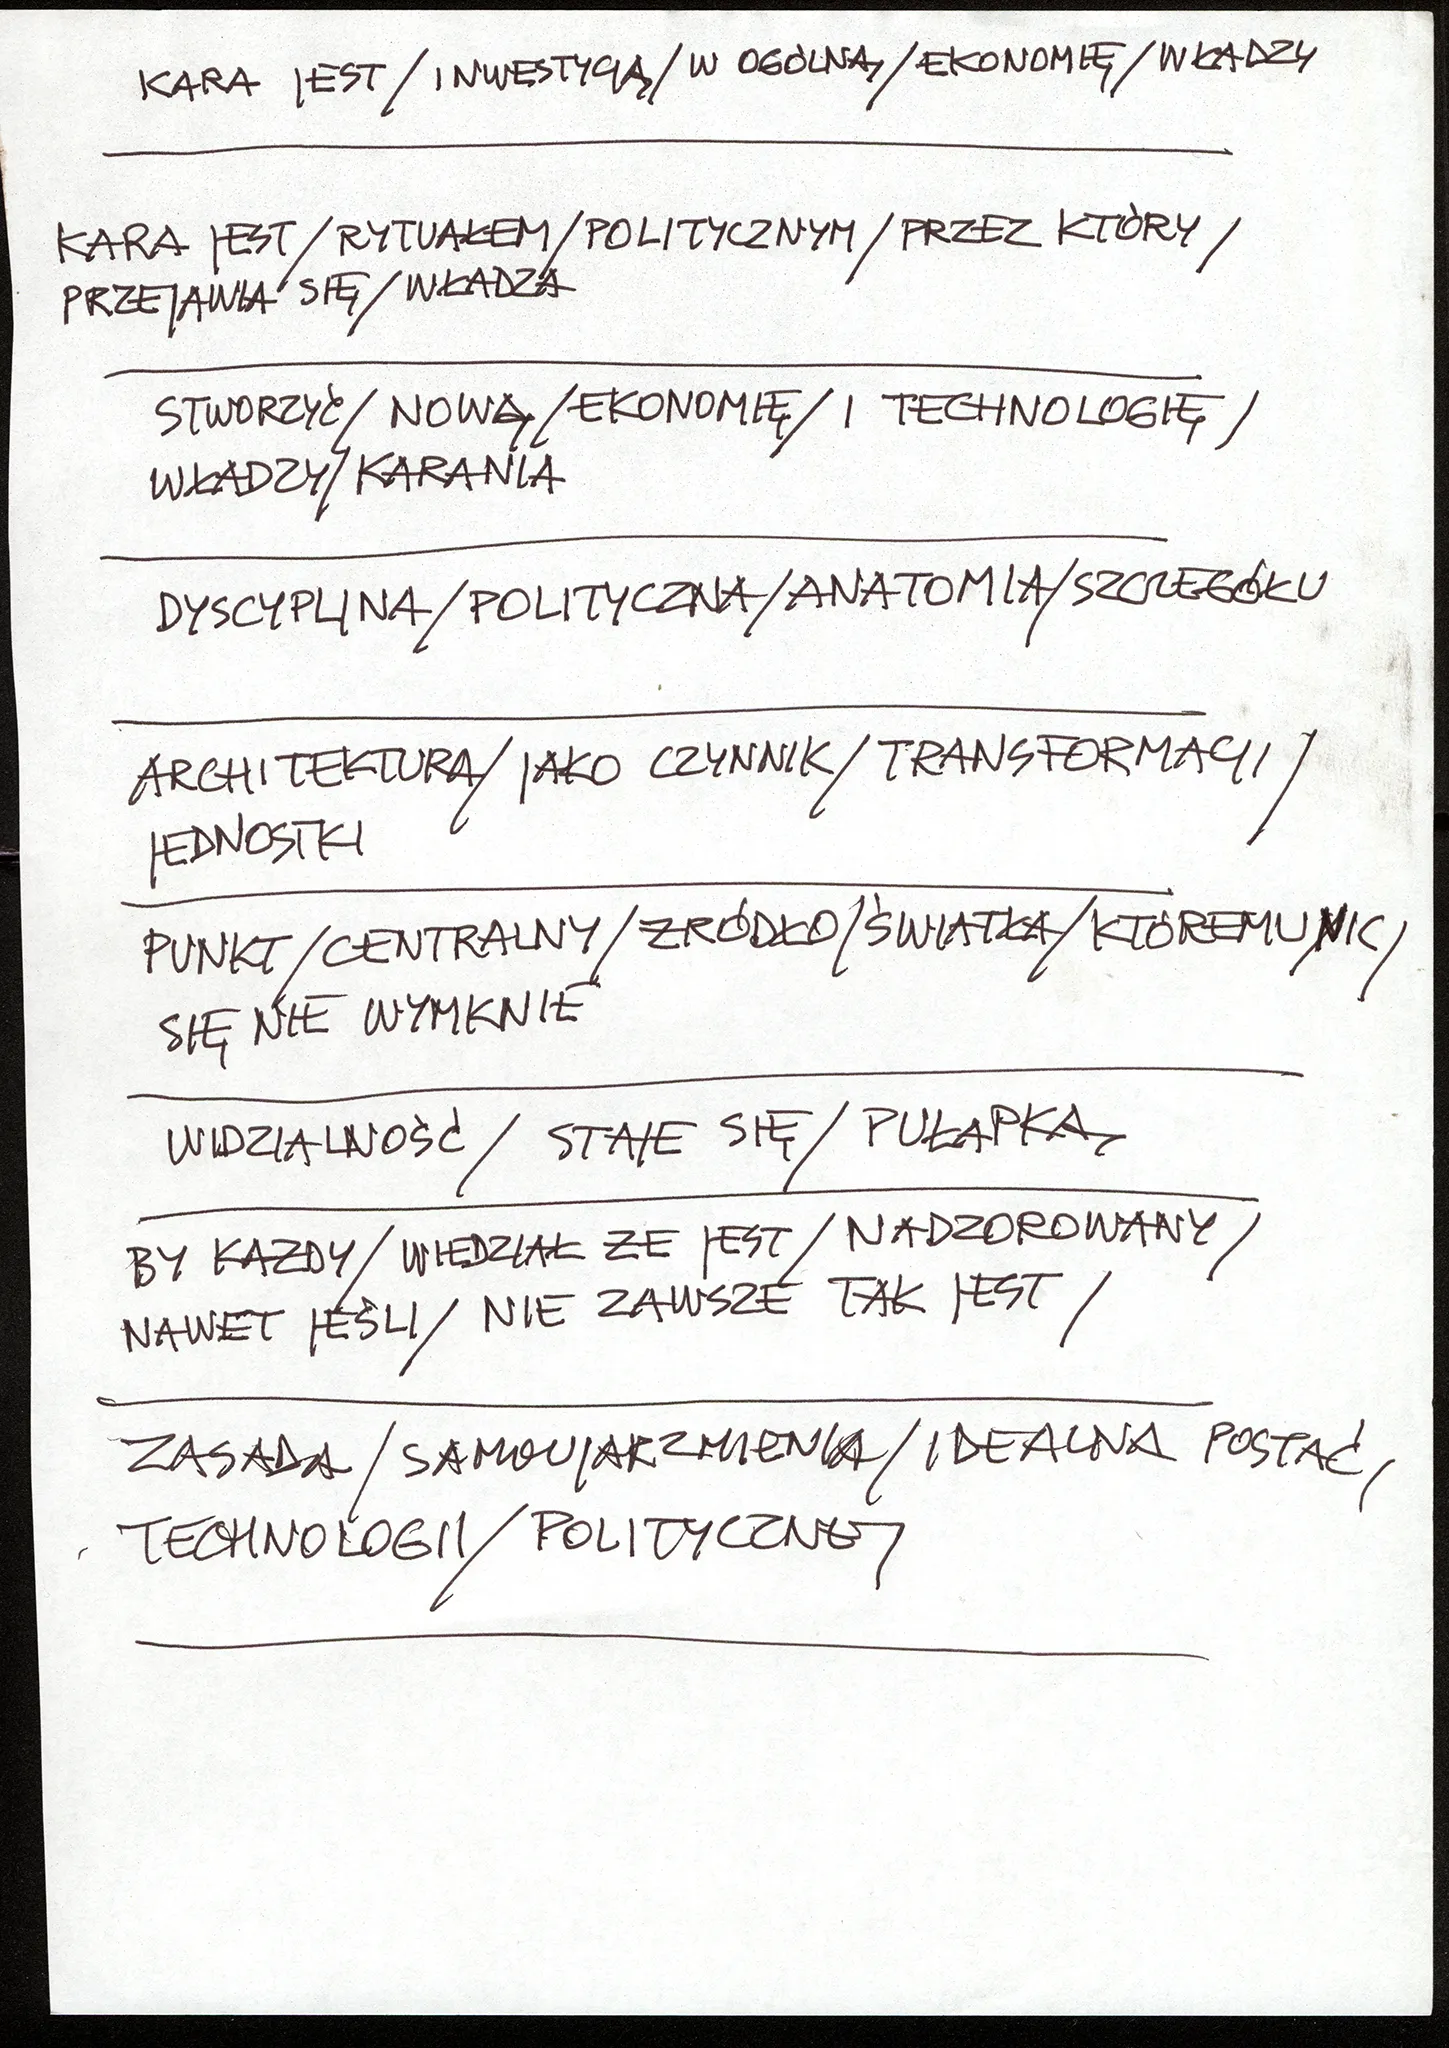 KARA JEST / INWESTYCJĄ / W OGÓLNĄ / EKONOMIĘ / WŁADZY
KARA JEST / RYTUAŁEM / POLITYCZNYM / PRZEZ KTÓRY /
PRZEJAWIA SIĘ / WŁADZA
STWORZYĆ / NOWĄ / EKONOMIĘ / I TECHNOLOGIĘ /
WŁADZY / KARANIA
DYSCYPLINA / POLITYCZNA / ANATOMIA / SZCZEGÓŁU
ARCHITEKTURA / JAKO CZYNNIK / TRANSFORMACJI /
JEDNOSTKI
PUNKT / CENTRALNY / ŹRÓDŁO / ŚWIATŁA / KTÓREMU NIC /
SIĘ NIE WYMKNIE
WIDZIALNOŚĆ / STAJE SIĘ / PUŁAPKĄ
BY KAZDY / WIEDZIAŁ ZE JEST / NADZOROWANY /
NAWET JEŚLI / NIE ZAWSZE TAK JEST /
ZASADA / SAMOUJARZMIENIA / IDEALNA POSTAĆ /
TECHNOLOGII / POLITYCZNEJ